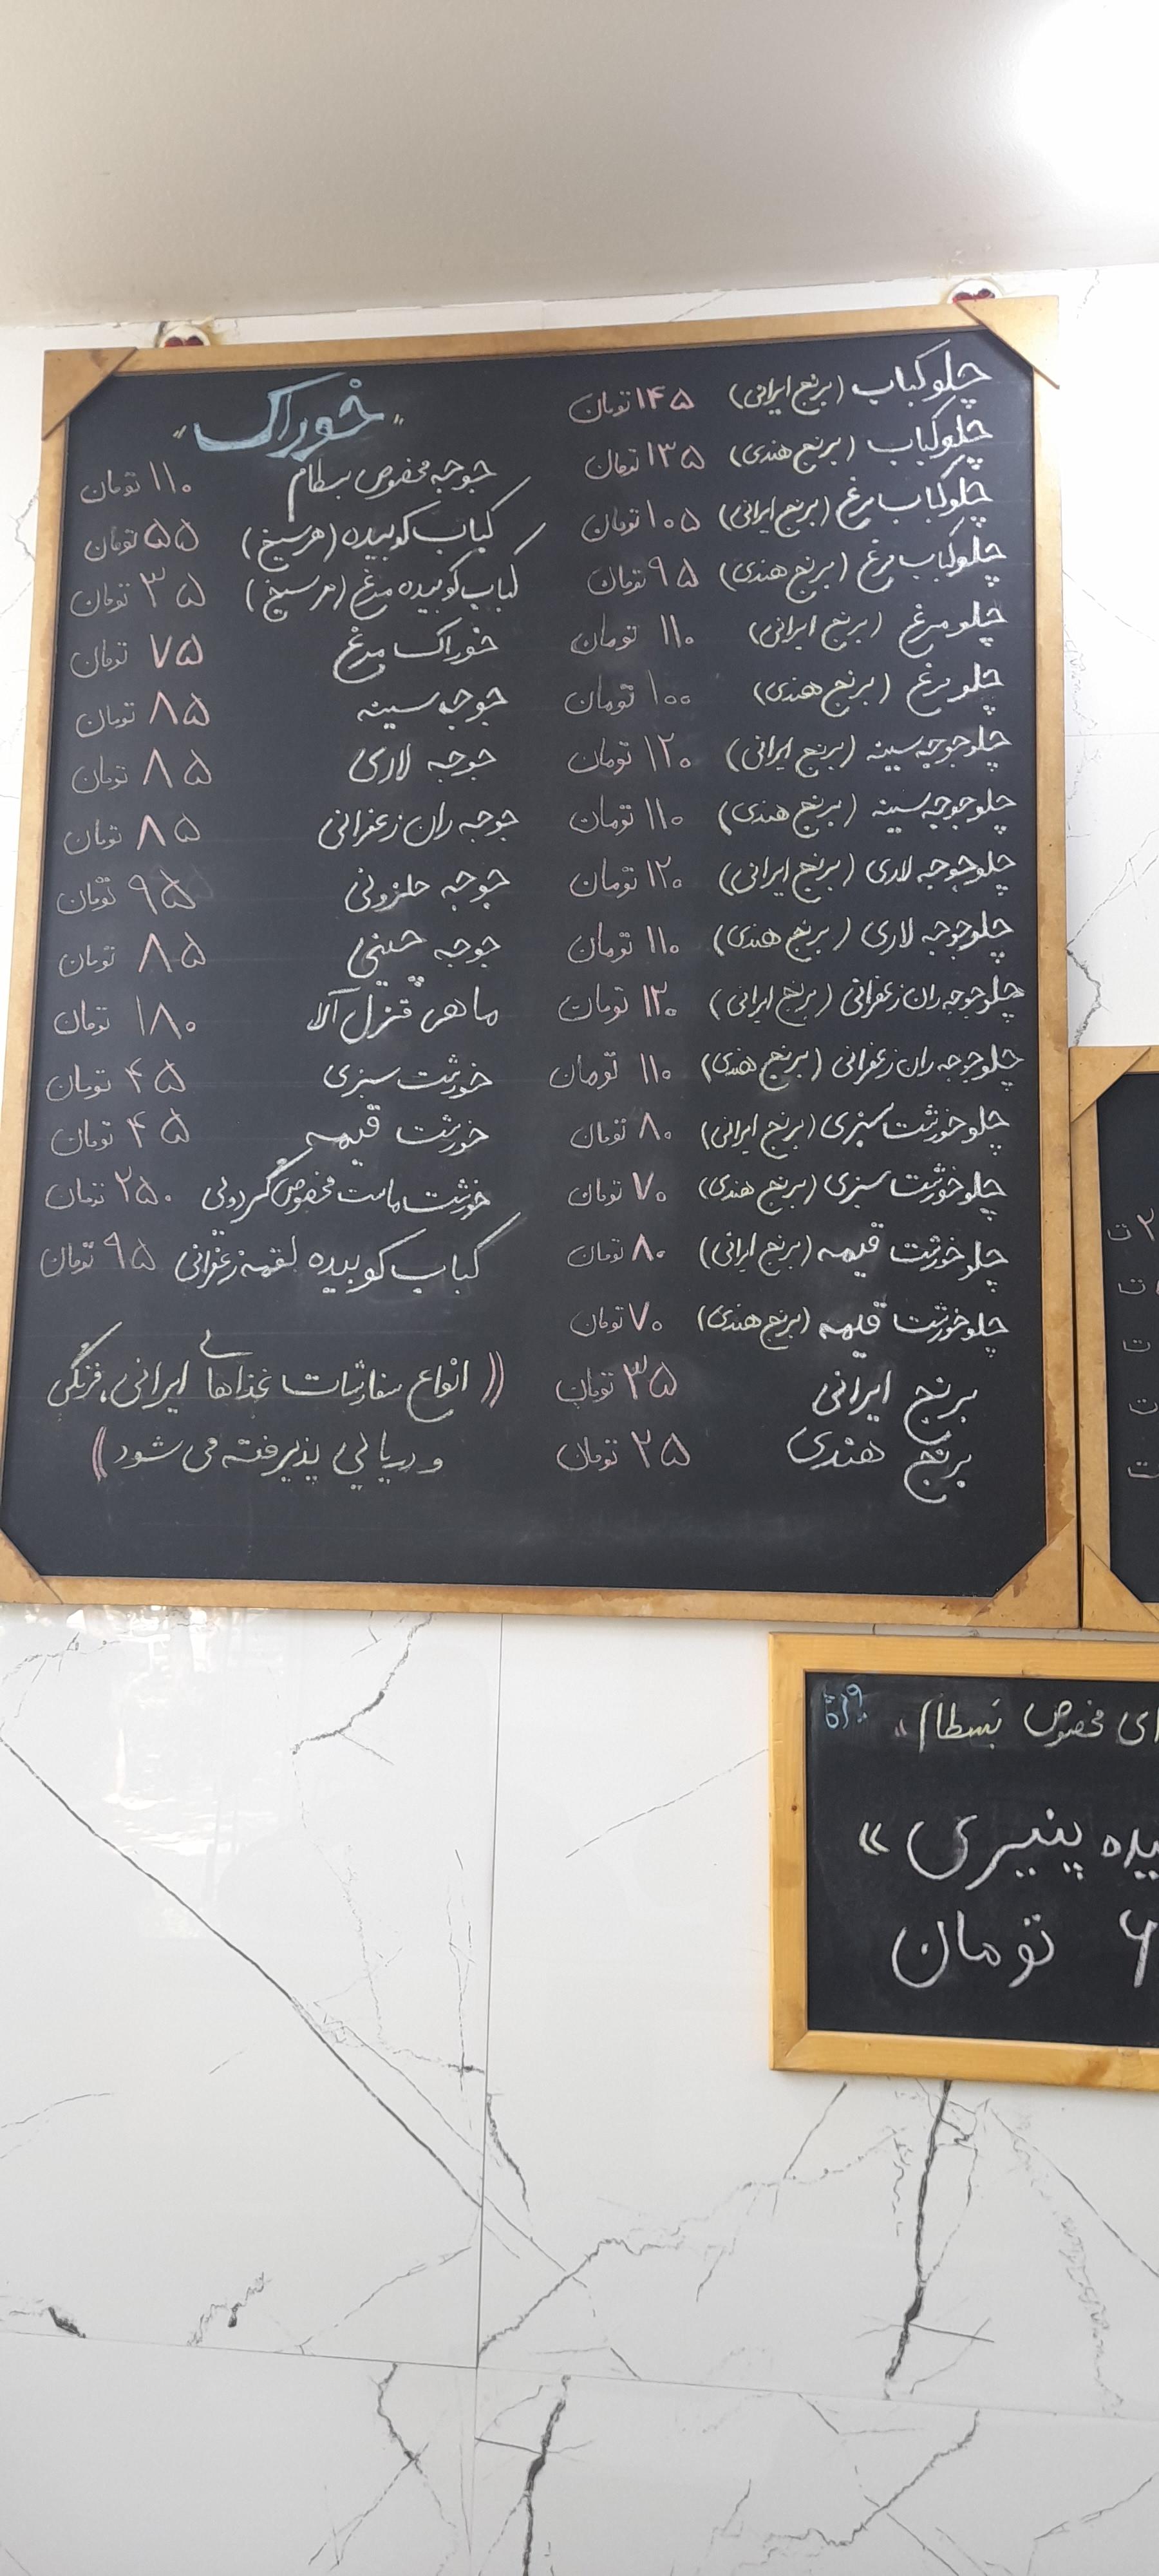 چلوکباب (برنج ایرانی) ۱۴۵ تومان
چلوکباب (برنج هندی) ۱۳۵ تومان
چلوکباب مرغ (برنج ایرانی) ۱۰۵ تومان
چلوکباب مرغ (برنج هندی) ۹۵ تومان
چلو مرغ (برنج ایرانی) ۱۱۰ تومان
چلو مرغ (برنج هندی) ۱۰۰ تومان
چلو جوجه سینه (برنج ایرانی) ۱۲۰ تومان
چلو جوجه سینه (برنج هندی) ۱۱۰ تومان
چلو جوجه لاری (برنج ایرانی) ۱۲۰ تومان
چلو جوجه لاری (برنج هندی) ۱۱۰ تومان
چلو جوجه ران زعفرانی (برنج ایرانی) ۱۲۰ تومان
چلو جوجه ران زعفرانی (برنج هندی) ۱۱۰ تومان
چلو خورشت سبزی (برنج ایرانی) ۸۰ تومان
چلو خورشت سبزی (برنج هندی) ۷۰ تومان
چلو خورشت قیمه (برنج ایرانی) ۸۰ تومان
چلو خورشت قیمه (برنج هندی) ۷۰ تومان
برنج ایرانی ۳۵ تومان
برنج هندی ۲۵ تومان
"خوراک"
جوجه مخصوص بسطام ۱۱۰ تومان
کباب کوبیده (هر سیخ) ۵۵ تومان
کباب کوبیده مرغ (هر سیخ) ۳۵ تومان
خوراک مرغ ۷۵ تومان
جوجه سینه ۸۵ تومان
جوجه لاری ۸۵ تومان
جوجه ران زعفرانی ۸۵ تومان
جوجه حلزونی ۹۵ تومان
جوجه چینی ۸۵ تومان
ماهی قزل آلا ۱۸۰ تومان
خورشت سبزی ۴۵ تومان
خورشت قیمه ۴۵ تومان
خورشت ماست مخصوص گردویی ۲۵۰ تومان
کباب کوبیده لقمه زعفرانی ۹۵ تومان
(( انواع سفارشات غذاهای ایرانی، فرنگی
و دریایی پذیرفته می شود ))
ت
ت
ت
ت
ت
مخصوص بسطام
پنیری »
تومان